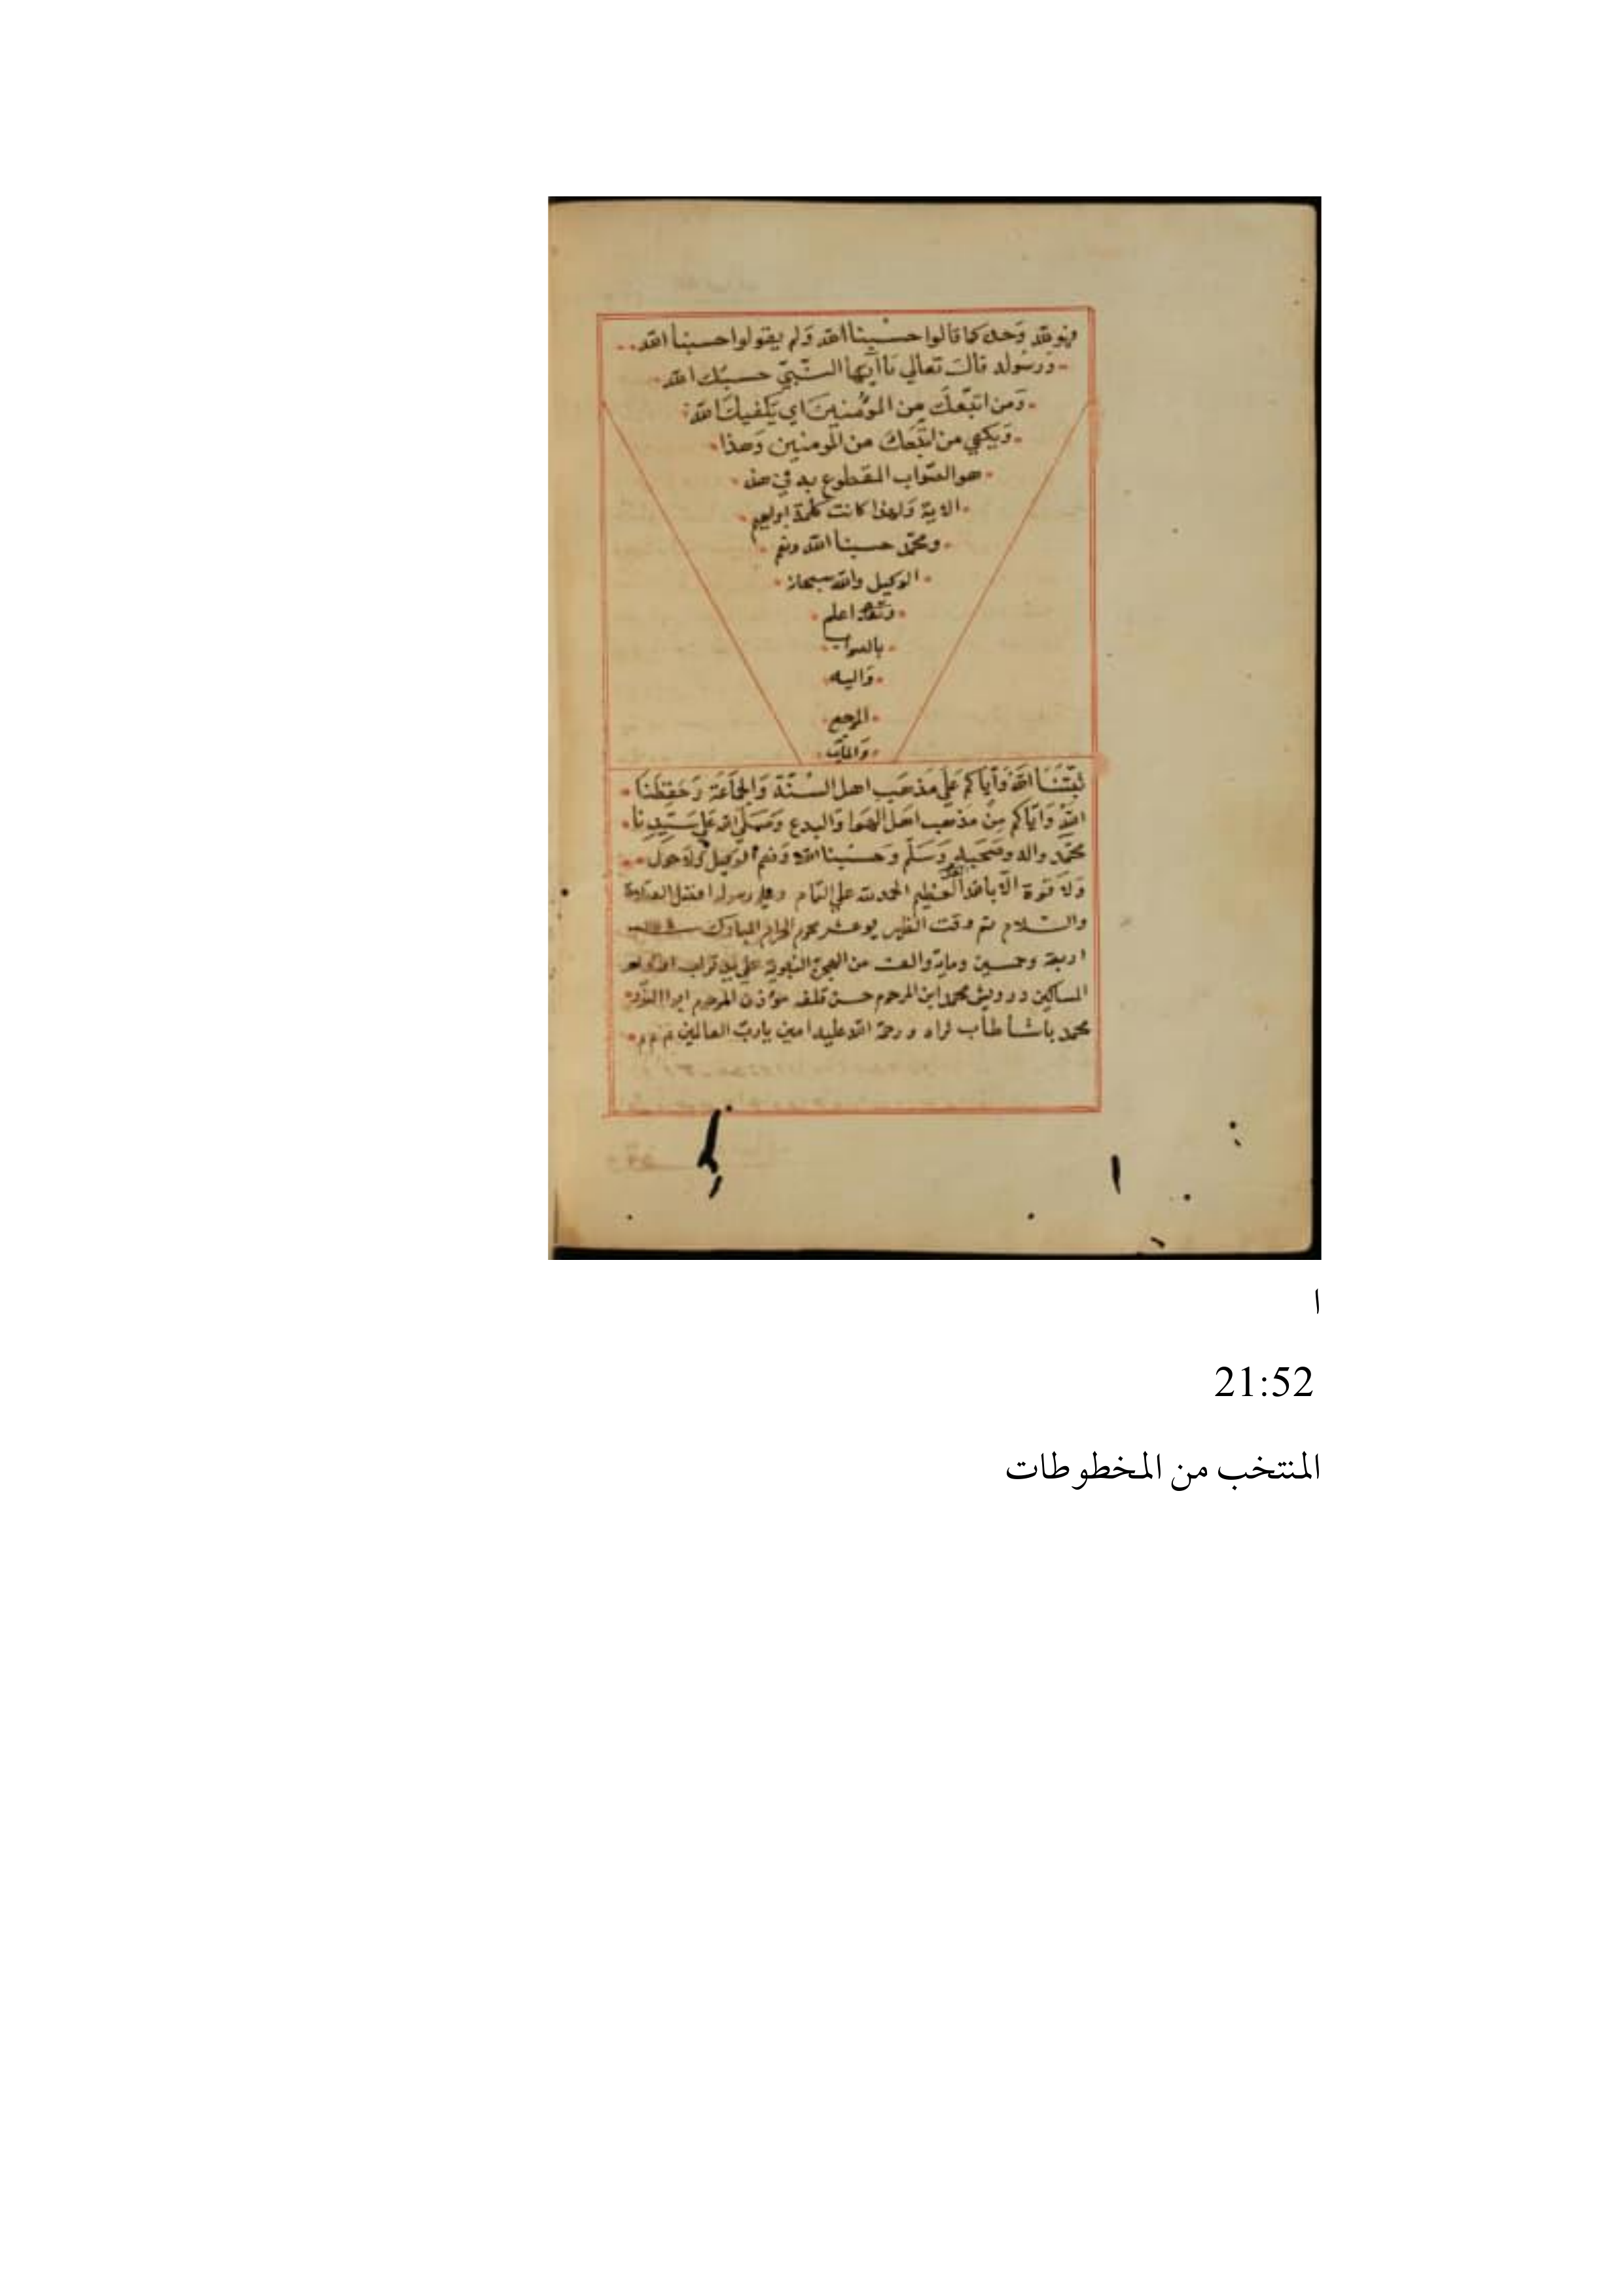 فهو لله وحده كما قالوا حسبنا الله ولم يقولوا حسبنا الله
ورسوله قال تعالى يا أيها النبي حسبك الله
ومن اتبعك من المؤمنين اي يكفيك الله
ويكفي من اتبعك من المومنين وهذا
هو الصواب المقطوع به في هذه
الاية ولهذا كانت كلمة ابراهيم
ومحمد حسبنا الله ونعم
الوكيل والله سبحانه
وتعالى اعلم
بالصواب
واليه
المرجع
والمآب
ثبتنا الله وأياكم على مذهب اهل السنة والجماعة وحفظنا
الله واياكم من مذهب اهل الهوا والبدع وصلى الله على سيدنا
محمد واله وصحبه وسلم وحسبنا الله ونعم الوكيل ولا حول
ولا قوة الا بالله العظيم الحمد لله على التمام وعلى رسوله افضل الصلاة
والسلام تم وقت الظهر محرم الحرام المبارك سنة
اربعة وخمسين وماية والف من الهجرة النبوية على يد تراب
المساكين درويش محمد ابن المرحوم حسن خلفه مؤذن المرحوم
محمد باشا طاب ثراه ورحمة الله عليه امين يا رب العالمين م م م
ا
21:52
المنتخب من المخطوطات